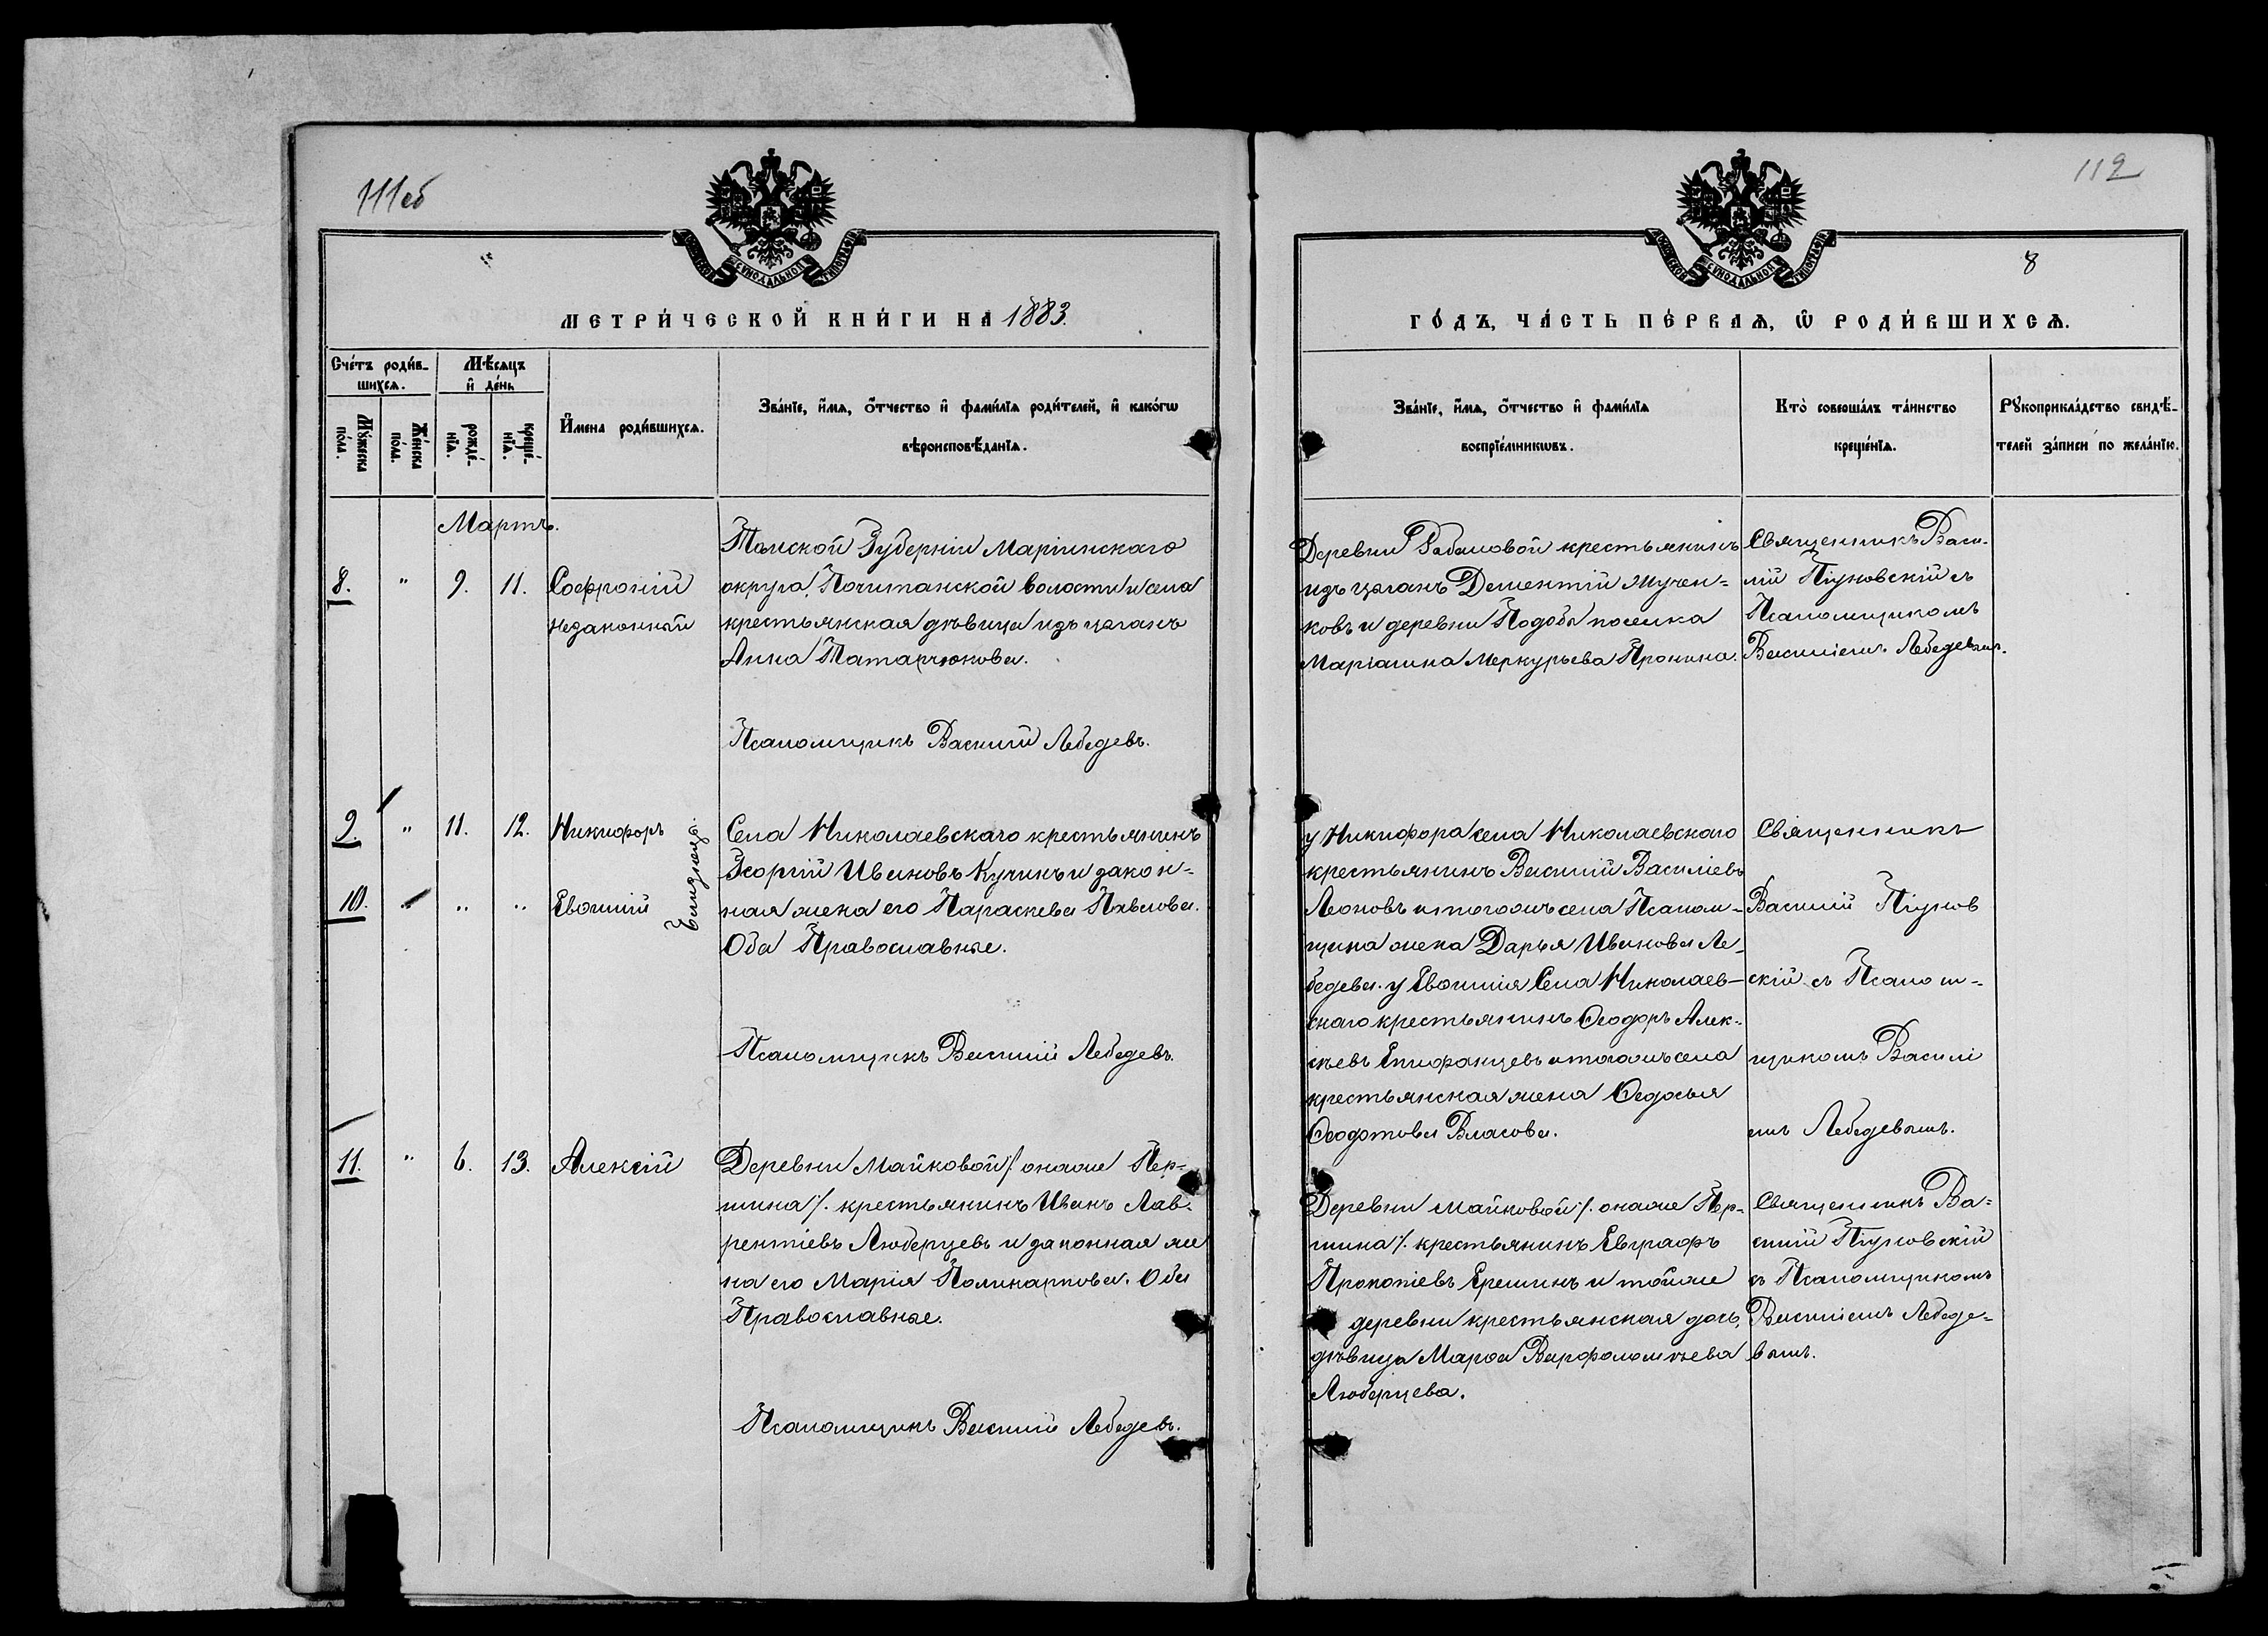 111об
112
8
МОСКОВСКОЙ СѴНОДАЛЬНОЙ ТИПОГРАФІИ
МОСКОВСКОЙ СѴНОДАЛЬНОЙ ТИПОГРАФІИ
МЕТРИ́ЧЕСКОЙ КНИ́ГИ НА 1883.
ГО́ДЪ, ЧА́СТЬ ПЕ́РВАѦ, Ѡ РОДИ́ВШИХСѦ.
Сче́тъ роди́в-
шихсѧ.
Мꙋ́жеска по́ла.
Же́нска по́ла.
Мѣ́сѧцъ
и҆ де́нь
рожде́-
нїѧ.
креще́-
нїѧ.
И҆мена роди́вшихсѧ.
Зва́нїе, и҆́мѧ, ѻ҆́тчество и҆ фами́лїѧ роди́телей, и҆ како́гѡ
вѣроисповѣ́данїѧ.
Зва́нїе, и҆́мѧ, ѻ҆́тчество и҆ фами́лїѧ
воспрїе́мникѡвъ.
Кто̀ соверша́лъ та́инство
креще́нїѧ.
Рꙋкоприкла́дство свидѣ́-
телей за́писи по жела́нїю.
Мартъ.
8. " 9. 11. Софроній
незаконный
Томской Губерніи Маріинскаго
округа, Почитанской волости и села
крестьянская дѣвица изъ цыганъ
Анна Татарчюкова.
Псаломщикъ Василій Лебедевъ.
Деревни крестьянинъ
изъ цыганъ Дементій Мучен=
ковъ и деревни поселка
Маріамна Меркурьева Пронина.
Священникъ Васи-
лій съ
Псаломщикомъ
Василіемъ Лебедевымъ.
9. " 11. 12. Никифоръ
10. " " " Евѳимій
близнецы.
Села Николаевскаго крестьянинъ
Георгій Ивановъ Кучинъ и закон=
ная жена его Параскева Павлова.
Оба Православные.
Псаломщикъ Василій Лебедевъ.
у Никифора села Николаевскаго
крестьянинъ Василій Василіевъ
Леоновъ и тогожъ села Псалом-
щика жена Дарья Иванова Ле-
бедева. у Евѳимія Села Николаев-
скаго крестьянинъ Ѳеодоръ Алек-
сѣевъ Епифанцевъ и тогожъ села
крестьянская жена Ѳедосья
Ѳеодотова Власова.
Священникъ
Василій
скій съ Псалом-
щикомъ Василі
емъ Лебедевымъ.
11. " 6. 13. Алексій
Деревни Майковой /. онаже Пер-
шина /. крестьянинъ Иванъ Лав-
рентіевъ Люберцевъ и законная же
на его Марія Поликарпова. Оба
Православные.
Псаломщикъ Василій Лебедевъ.
Деревни Майковой /. онаже Пер-
шина /. крестьянинъ Евграфъ
Прокопіевъ Еремин и тойже
деревни крестьянская дочь,
дѣвица Марѳа Варфоломѣева
Люберцева.
Священникъ Ва=
силій
съ Псаломщикомъ
Василіемъ Лебеде=
вымъ.